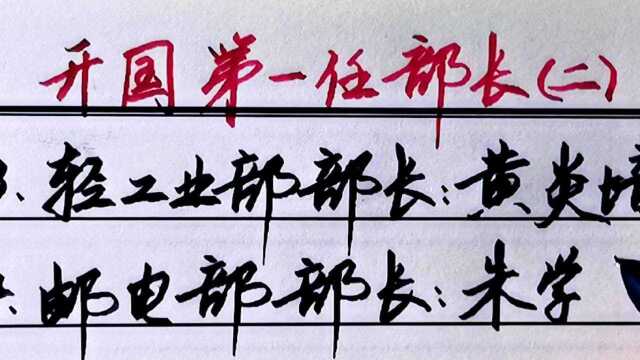 开国第一任部长(二)
3、轻工业部部长:黄炎培
、邮电部部长:朱学